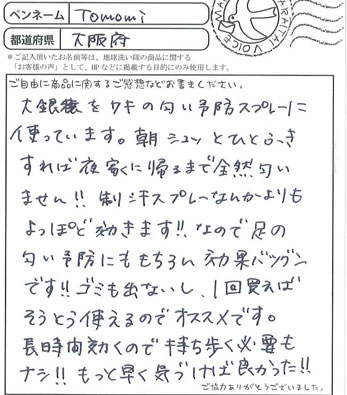 ペンネーム Tomomi
都道府県 大阪府
*ご記入頂いたお名前等は、地球洗い隊の商品に関する
「お客様の声」として、HPなどに掲載する目的にのみ使用します。
ARAITAI VOICE
ご自由に商品に関するご感想などお書きください。
大銀穣をワキの匂い予防スプレーに
使っています。朝シュッとひとふき
すれば夜家に帰るまで全然匂い
ません!! 制汗スプレーなんかよりも
よっぽど効きます!! なので足の
匂い予防にももちろん効果バツグン
です!! ゴミも出ないし、1回買えば
そうとう使えるのでオススメです。
長時間効くので持ち歩く必要も
ナシ!! もっと早く気づけば良かった!!
ご協力ありがとうございました。